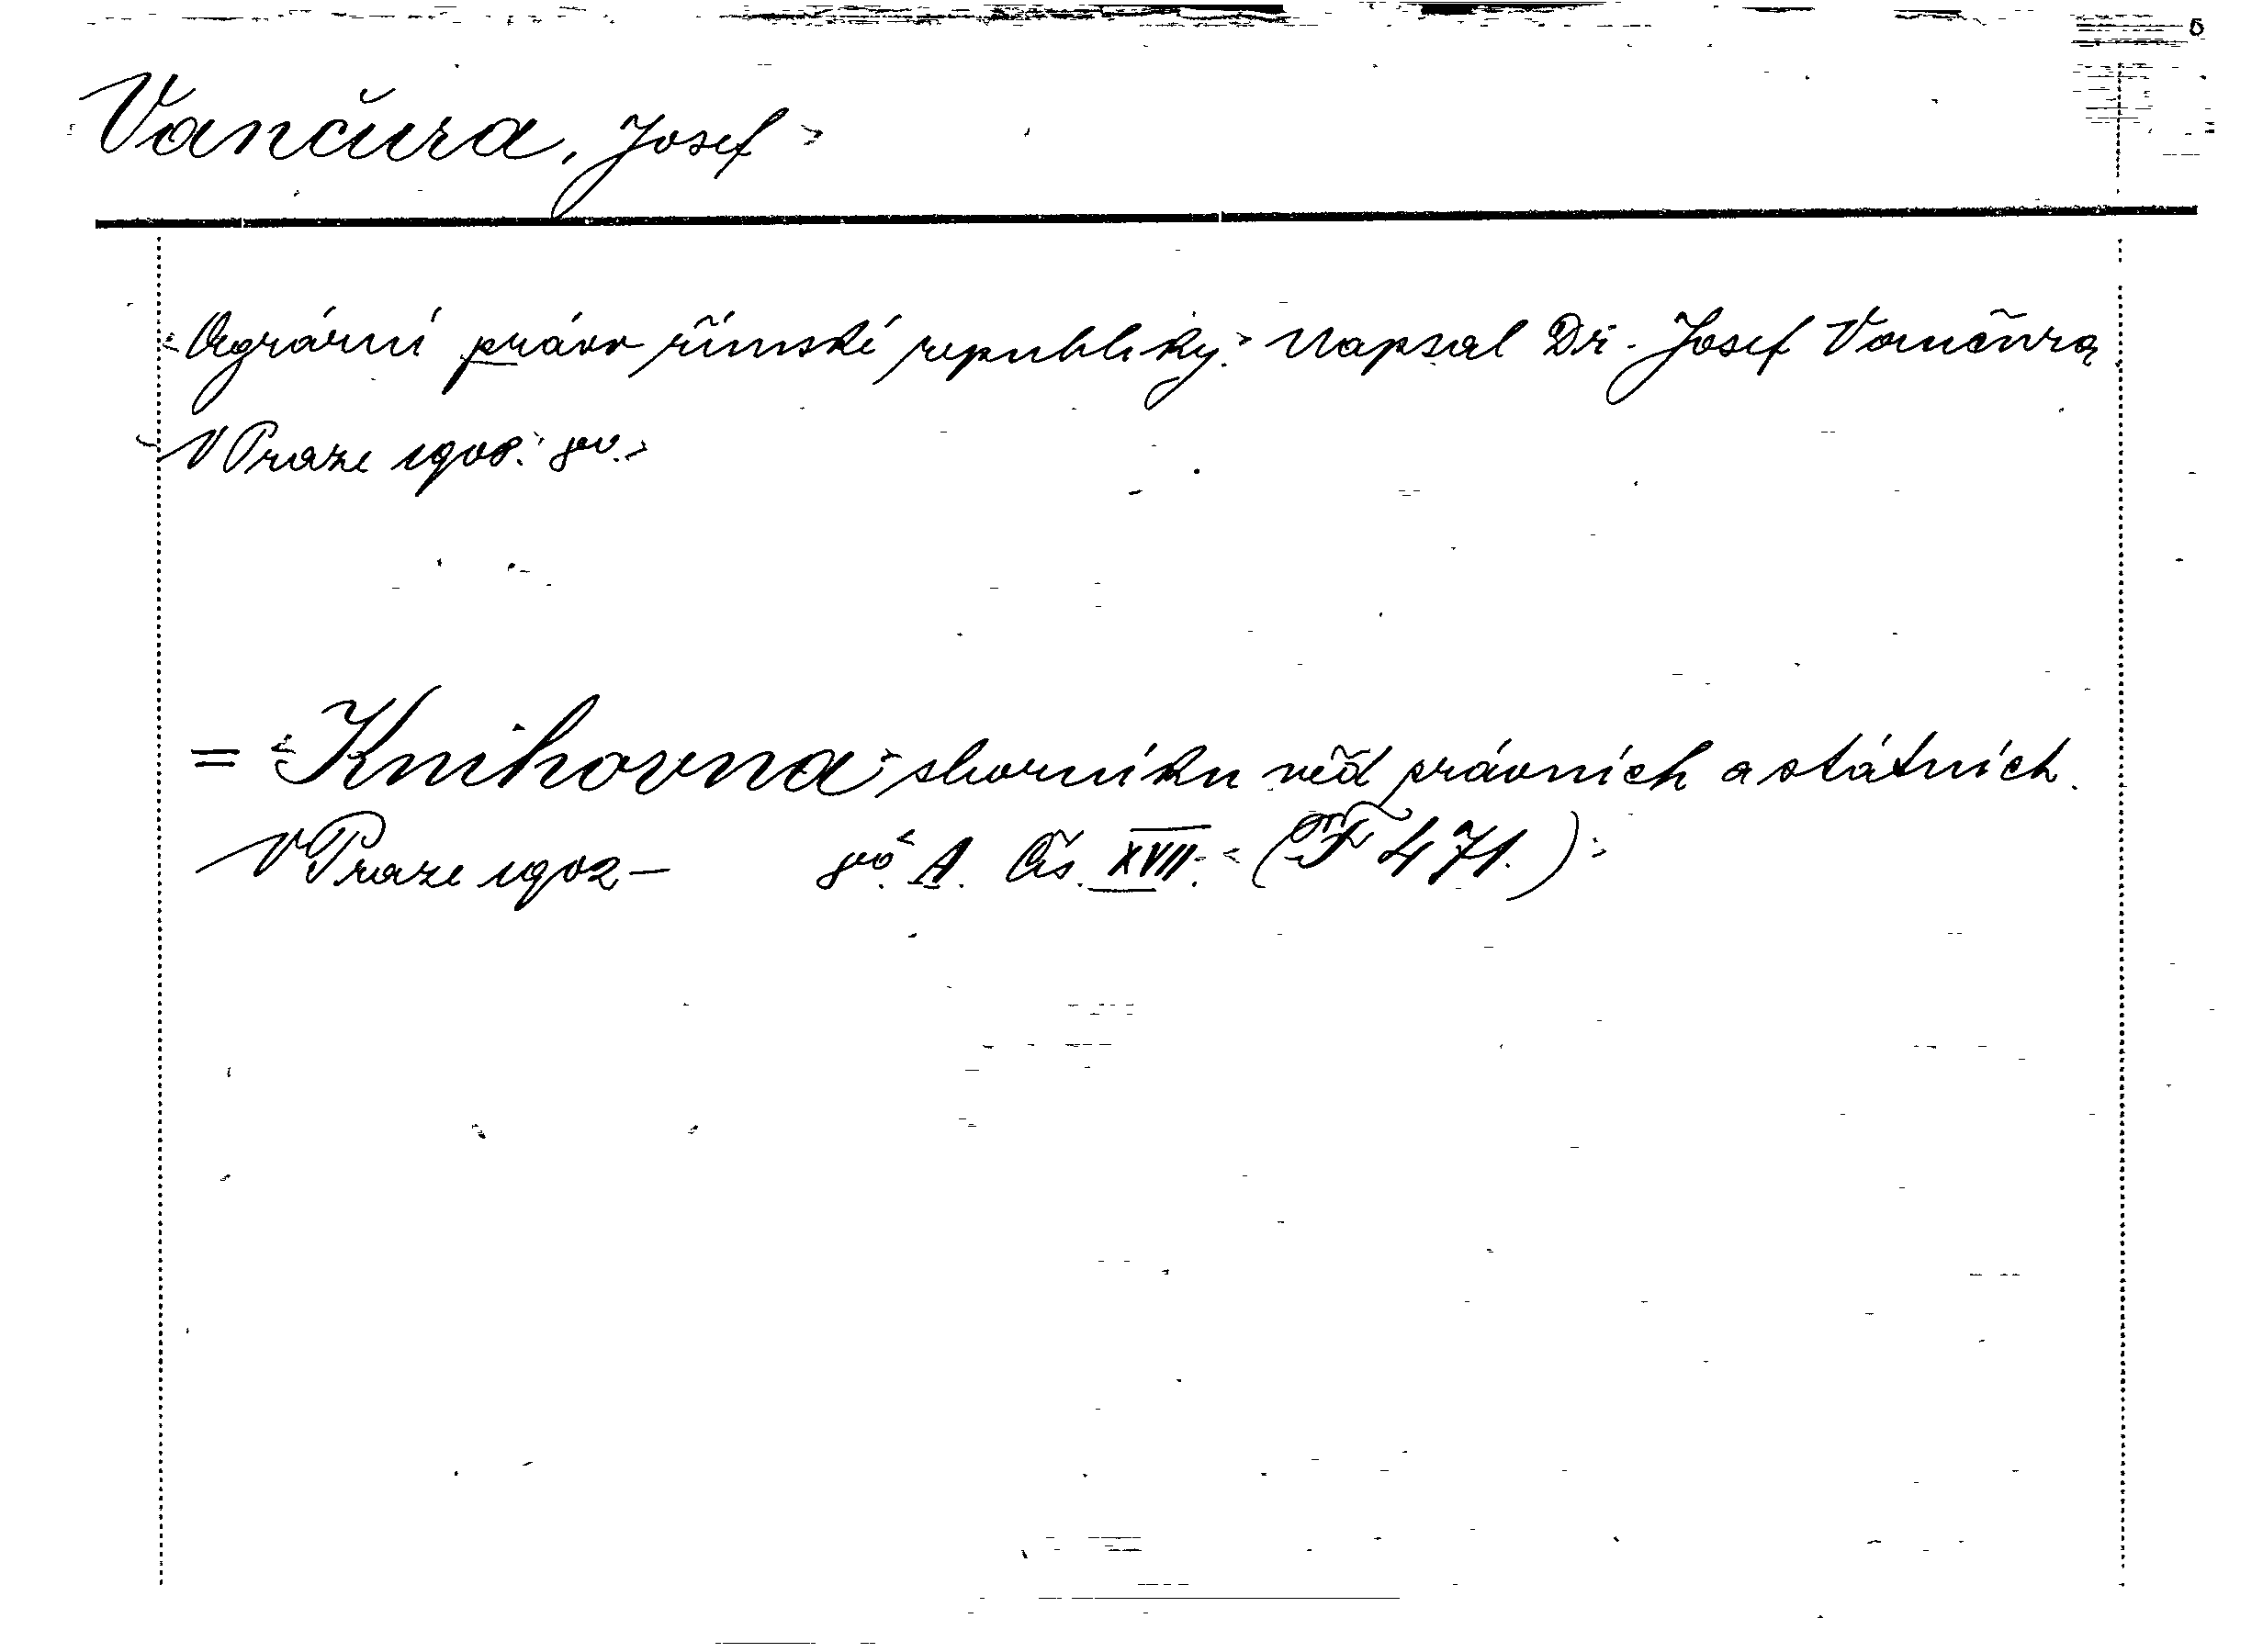 Vančura, Josef
Agrární právo římské republiky. Napsal Dr. Josef Vančura
V Praze 1908. 8vo.
= Knihovna sborníku věd právních a státních.
V Praze 1902 - 8vo. A. Čís. XVII. (F 471.)